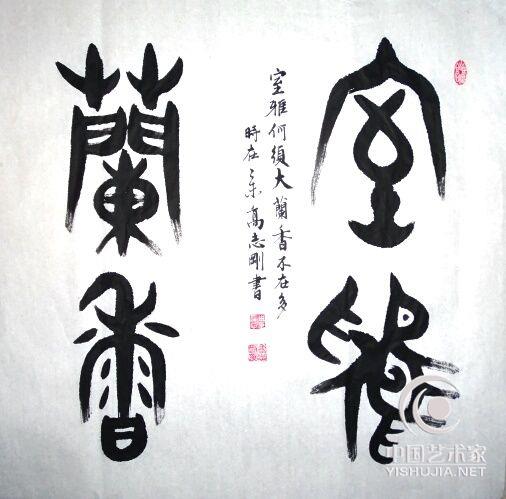 室雅
蘭香
室雅何須大蘭香不在多
時在京高志剛書
中国艺术家
YISHUJIA.NET